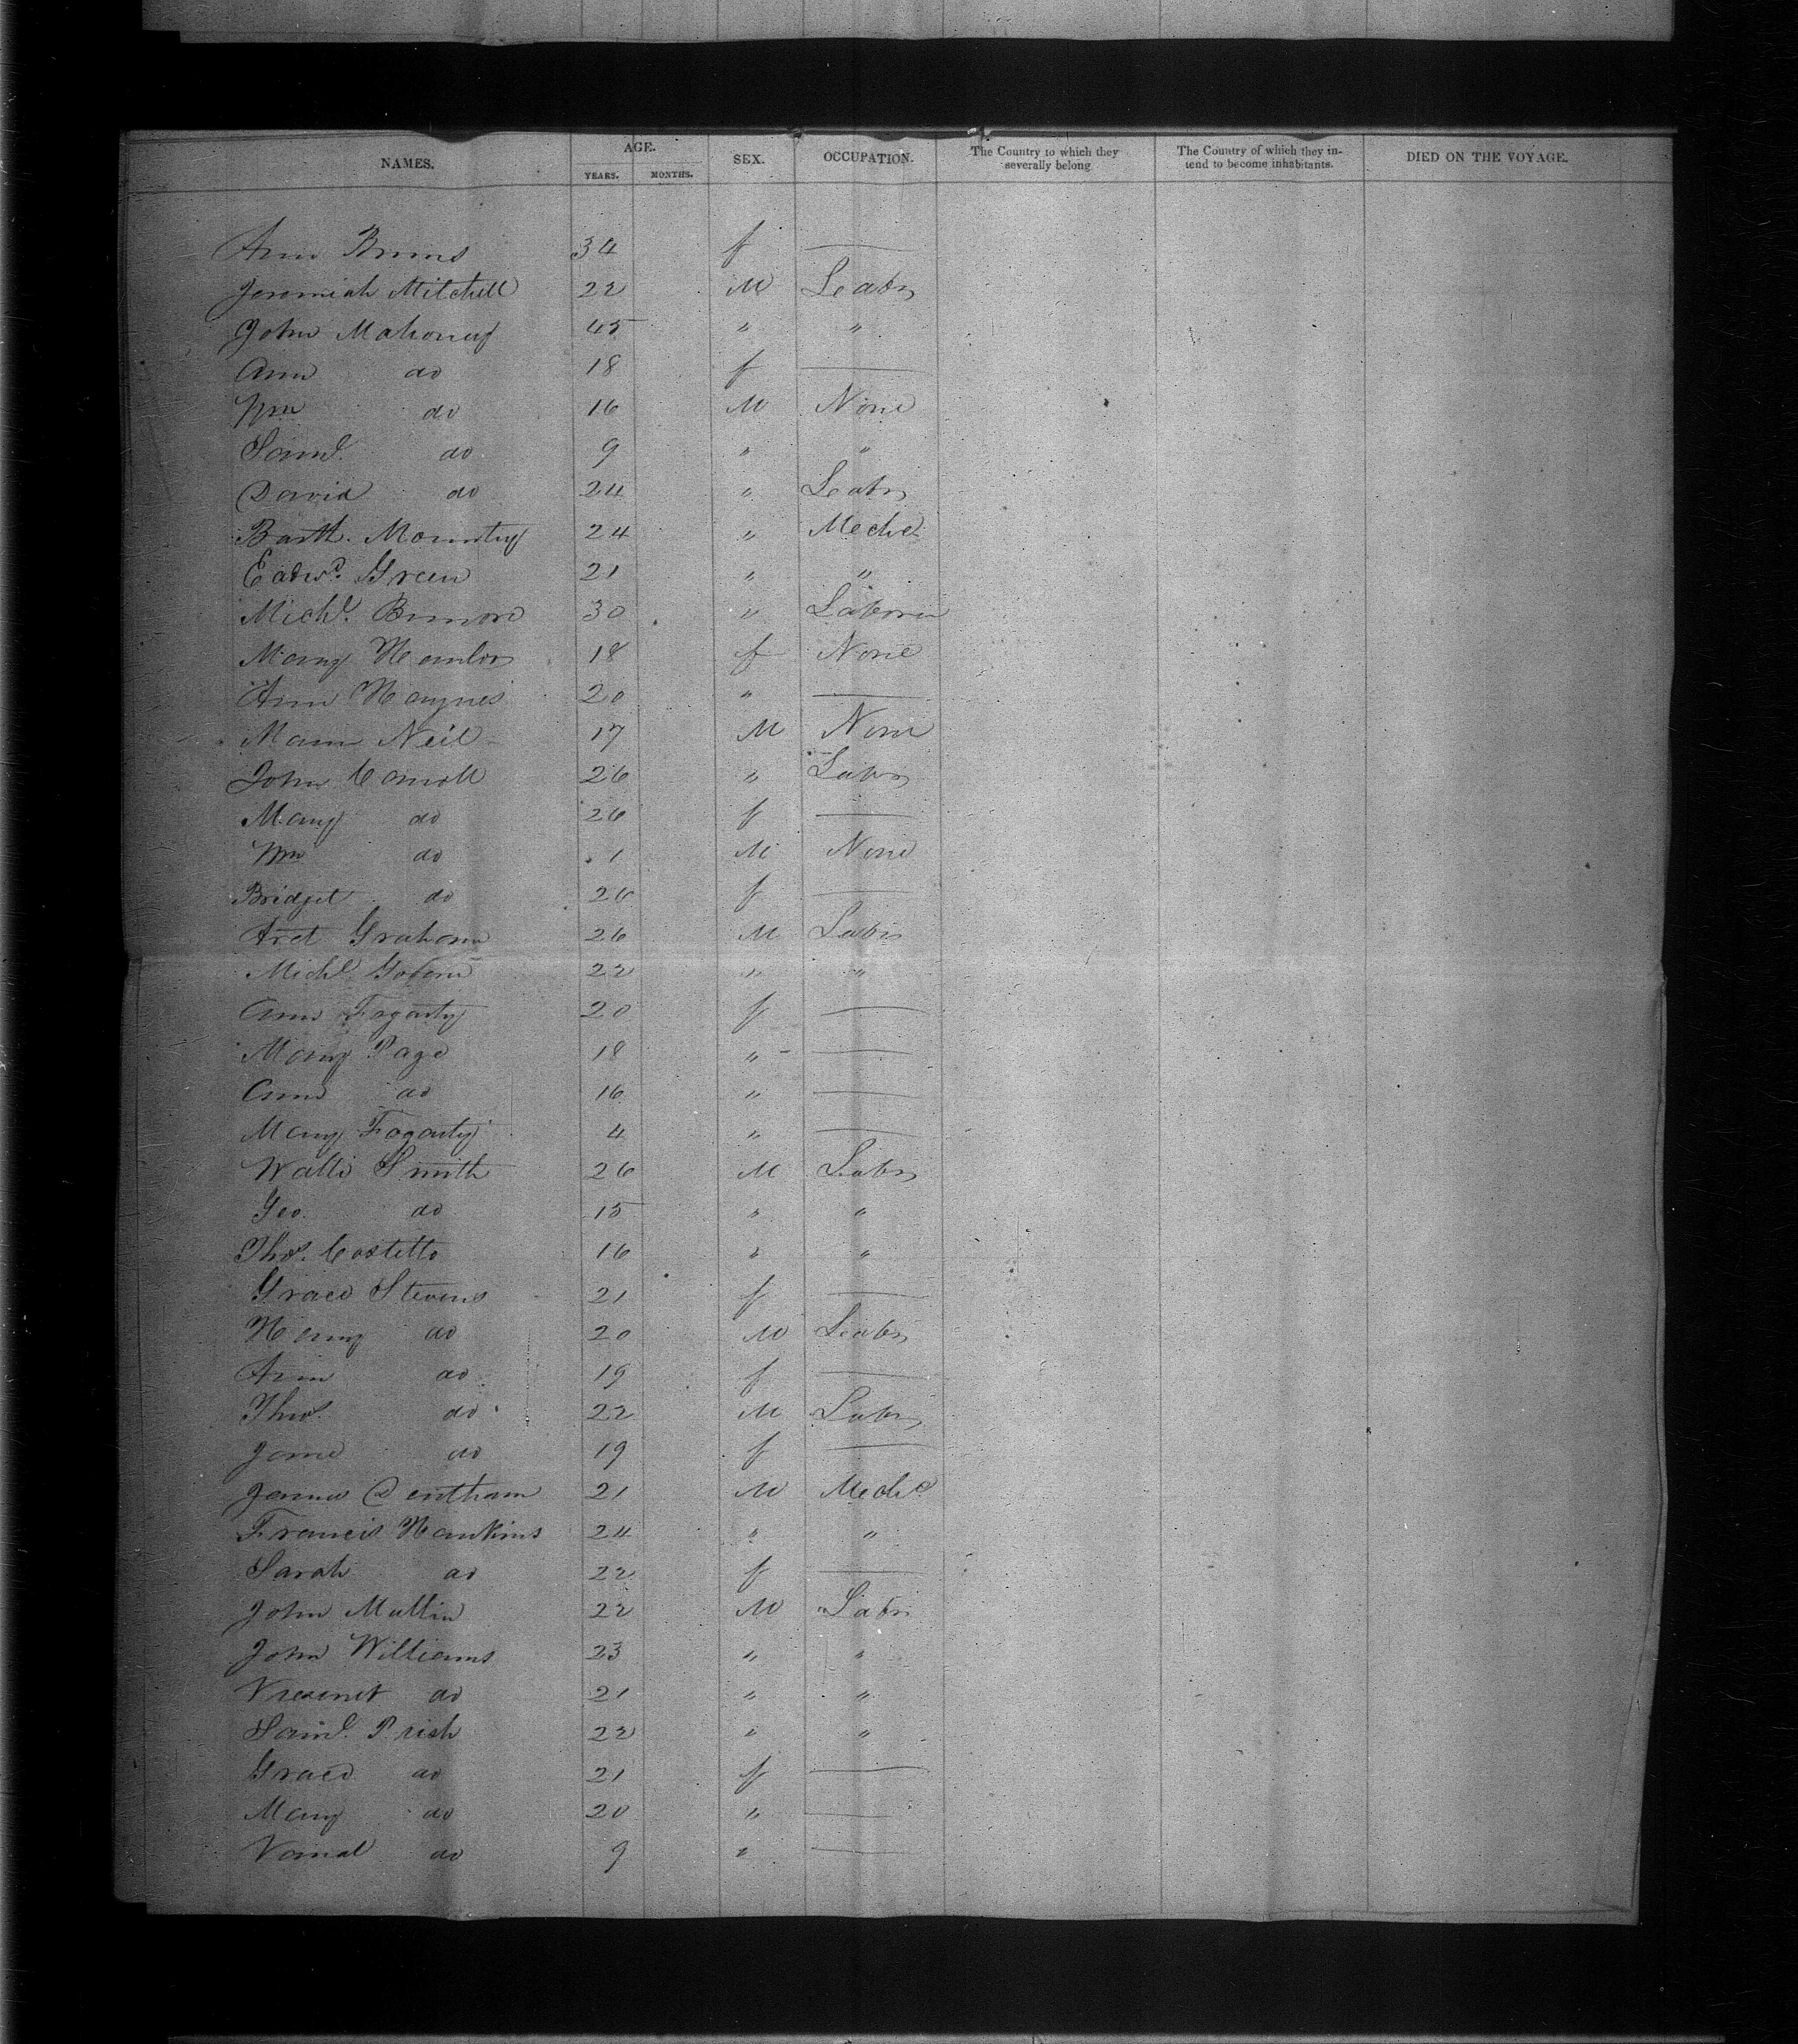 NAMES. AGE. SEX. OCCUPATION. The Country to which they severally belong. The Country of which they intend to become inhabitants. DIED ON THE VOYAGE.
YEARS. MONTHS.
Ann 34 f —
Jeremiah Mitchell 22 M Leabr
John Mahoney 45 " "
Ann do 18 f —
Wm do 16 M None
Saml. do 9 " "
David do 24 " Leabr
Barth. 24 " Meche
Eadwd. Green 21 " "
Michl. 30 " Laborer
Mary 18 f None
Ann Haynes 20 " —
Neil 17 M None
John Carroll 26 " Labr
Mary do 26 f —
Wm do 1 M None
Bridget do 26 f —
Graham 26 M Labr
Michl. 22 " "
Ann Fogarty 20 f —
Mary Page 18 " —
Ann do 16 " —
Mary Fogarty 4 " —
Smith 26 M Labr
Geo. do 15 " "
Thos. Costello 16 " "
Grace Stevens 21 f —
do 20 M Leabr
Ann do 19 f —
Thos. do 22 M Labr
Jane do 19 f —
21 M Meche
Francis Hawkins 24 " "
Sarah do 22 f —
John Mullin 22 M Labr
John Williams 23 " "
do 21 " "
Saml. Prish 22 " "
Grace do 21 f —
Mary do 20 " —
do 9 " —